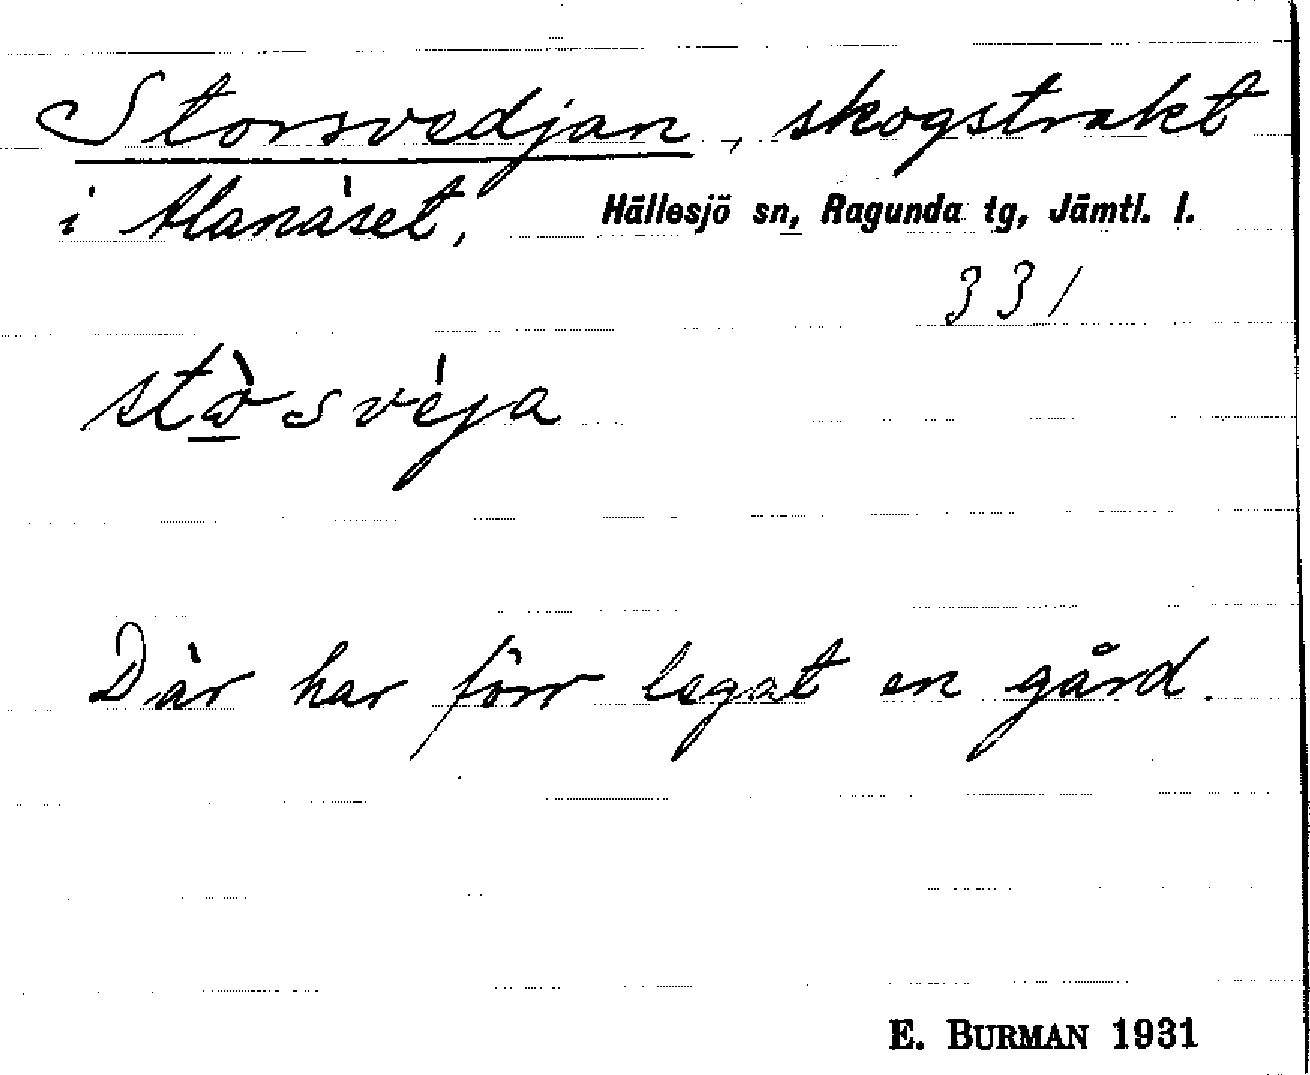 Storsvedjan, skogstrakt
i Alanäset, Hällesjö sn, Ragunda tg, Jämtl. l.
331
Där har förr legat en gård.
E. BURMAN 1931